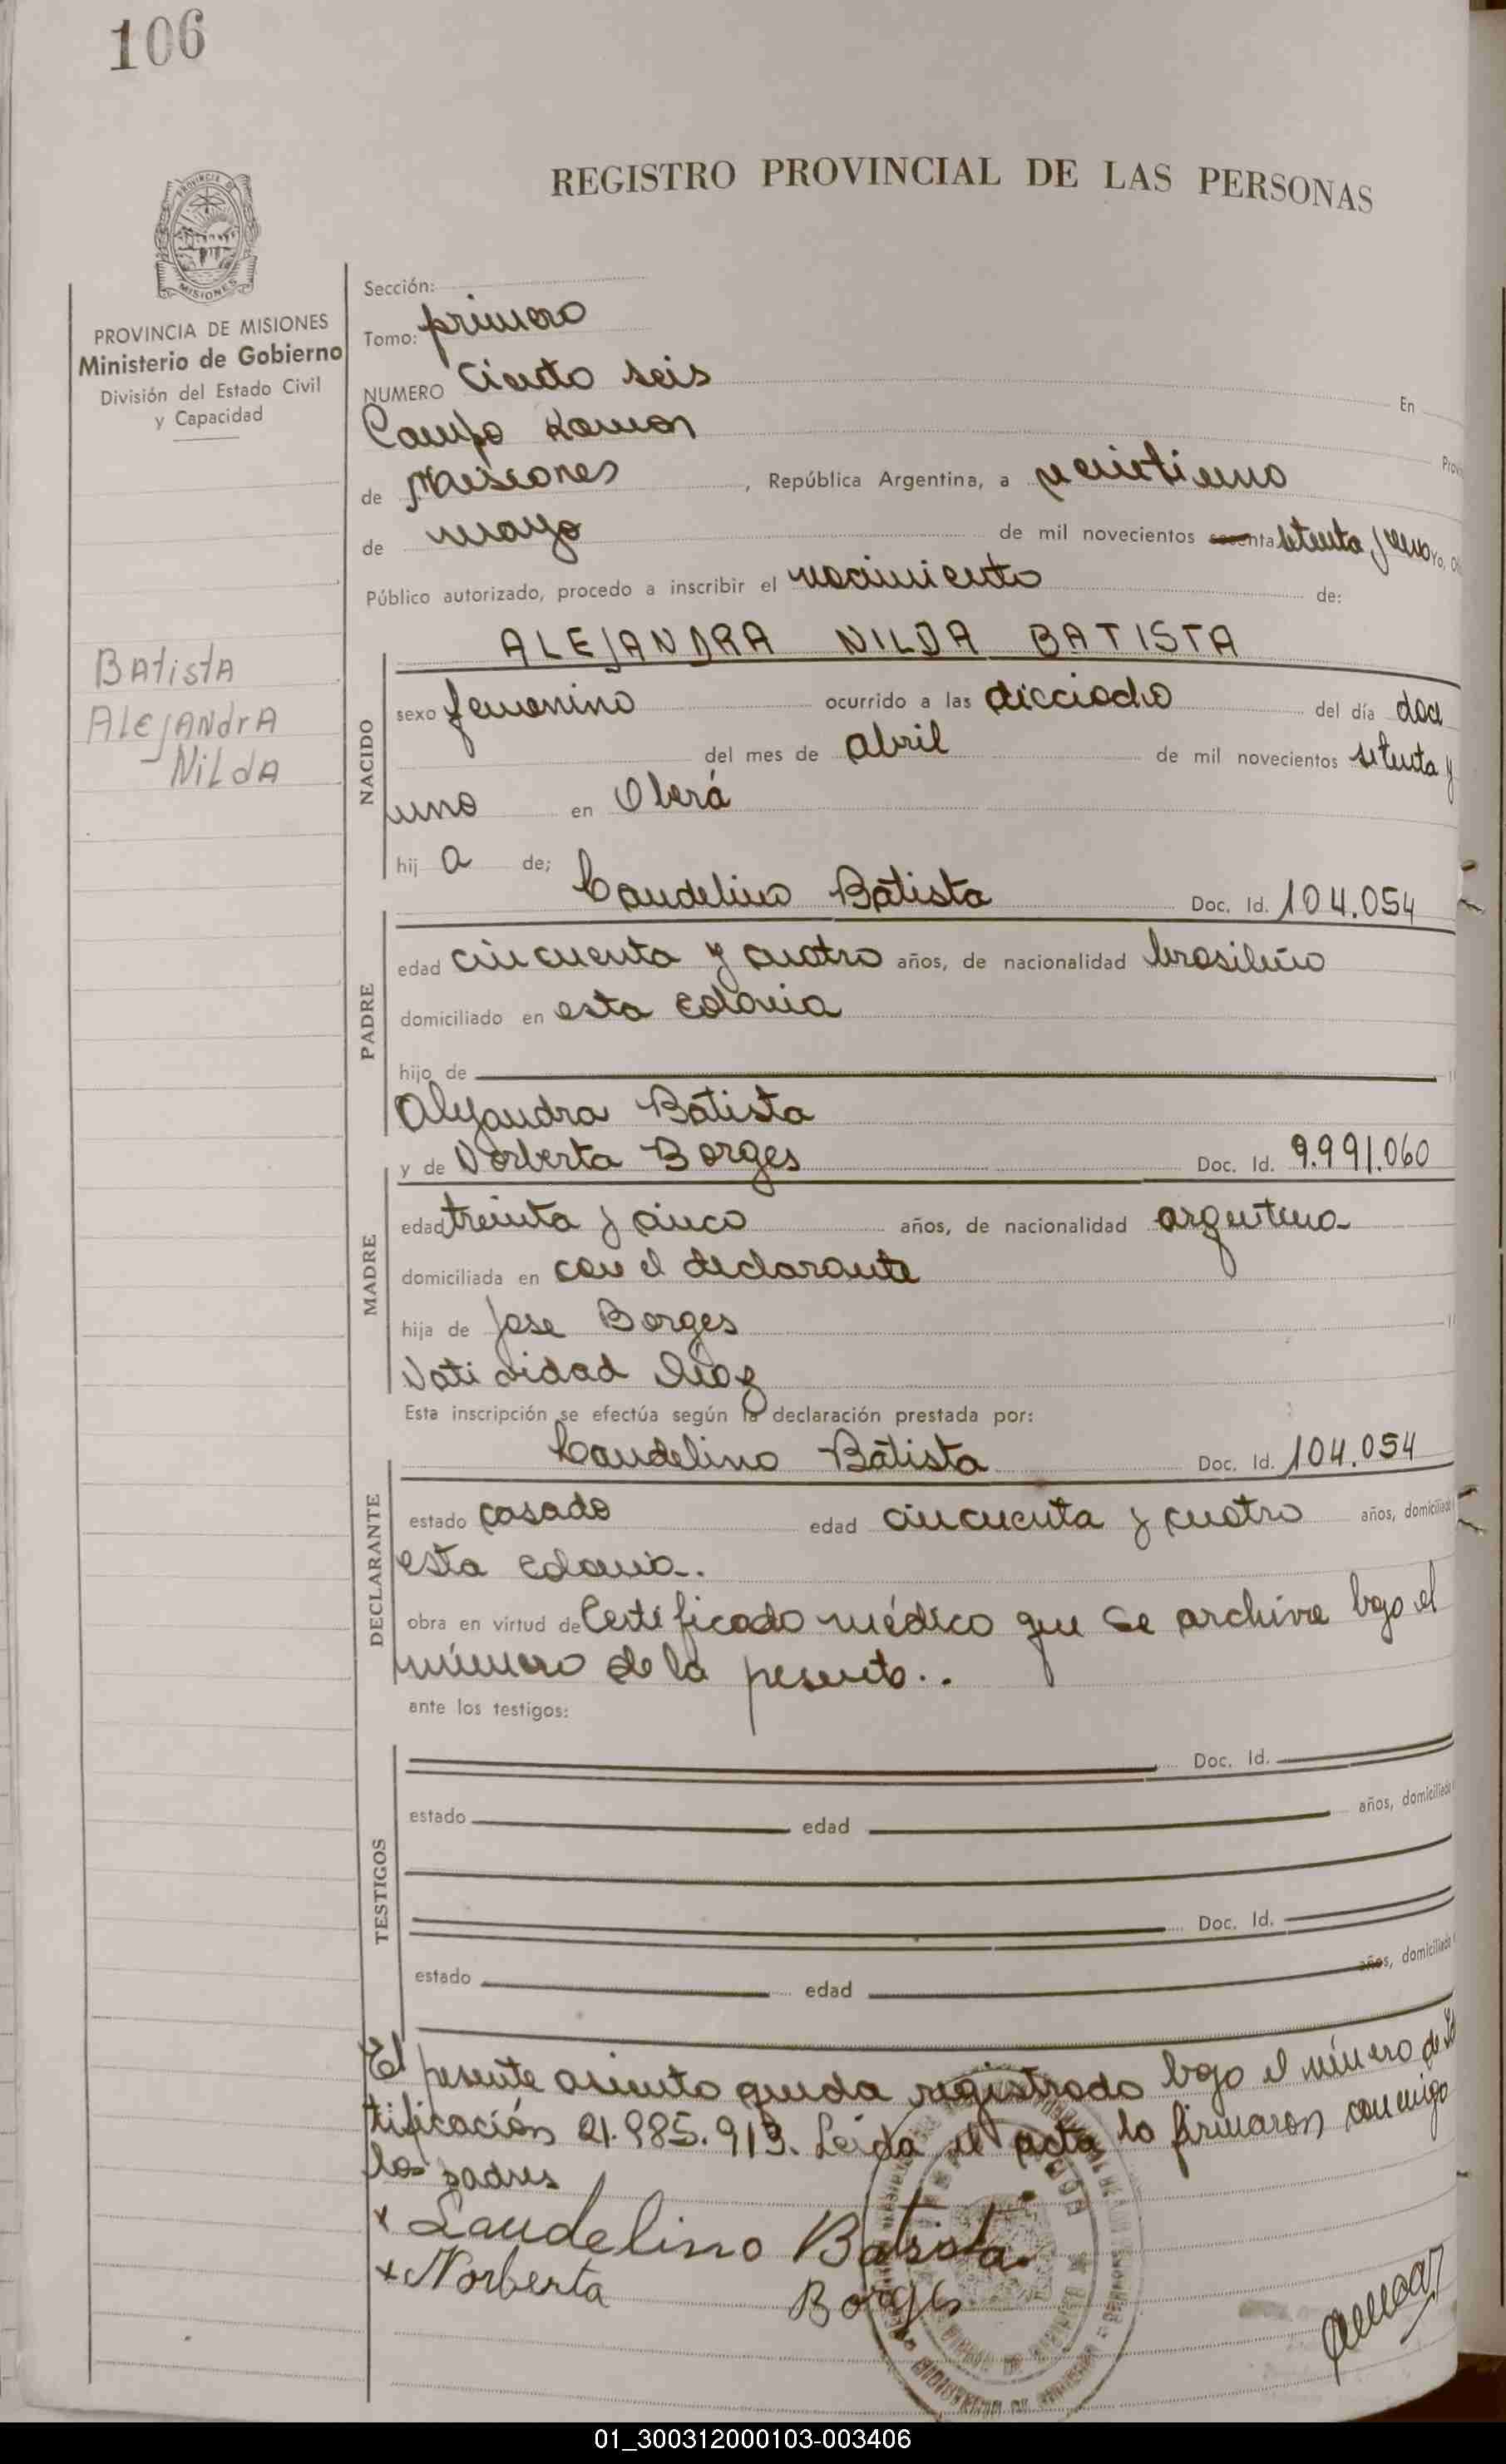 106
REGISTRO PROVINCIAL DE LAS PERSONAS
PROVINCIA DE
MISIONES
PROVINCIA DE MISIONES
Ministerio de Gobierno
División del Estado Civil
y Capacidad
Batista
Alejandra
Nilda
Sección:
Tomo: primero
NUMERO Ciento seis En
Campo Ramon
de Misiones, República Argentina, a veintiuno
de mayo de mil novecientos setenta y uno
Público autorizado, procedo a inscribir el nacimiento de:
ALEJANDRA NILDA BATISTA
NACIDO
sexo femenino ocurrido a las dieciocho del día doce
del mes de abril de mil novecientos setenta y
uno en Oberá
hij a de;
Laudelino Batista Doc. Id. 104.054
PADRE
edad cincuenta y cuatro años, de nacionalidad brasileño
domiciliado en esta colonia
hijo de
Alejandra Batista
y de Norberta Borges Doc. Id. 9.991.060
MADRE
edad treinta y cinco años, de nacionalidad argentina
domiciliada en con el declarante
hija de Jose Borges
Natividad Diaz
Esta inscripción se efectúa según la declaración prestada por:
Laudelino Batista Doc. Id. 104.054
DECLARANTE
estado casado edad cincuenta y cuatro años, domiciliado
esta colonia.
obra en virtud de Certificado médico que se archiva bajo el
número de la presente..
ante los testigos:
TESTIGOS
Doc. Id.
estado edad años, domiciliado
Doc. Id.
estado edad años, domiciliado
El presente asiento queda registrado bajo el número de
tificación 21.985.913. Leida el acta lo firmaron conmigo
los padres
x Laudelino Batista
x Norberta Borges
01_300312000103-003406